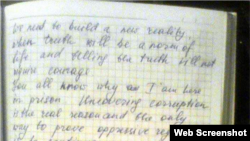 We need to build a new reality,
when truth will be a norm of
life and telling the truth will not
require courage.
You all know why am I am here
in prison. Uncovering corruption
is the real reason and the only
way to prove oppressive reg
Web Screenshot